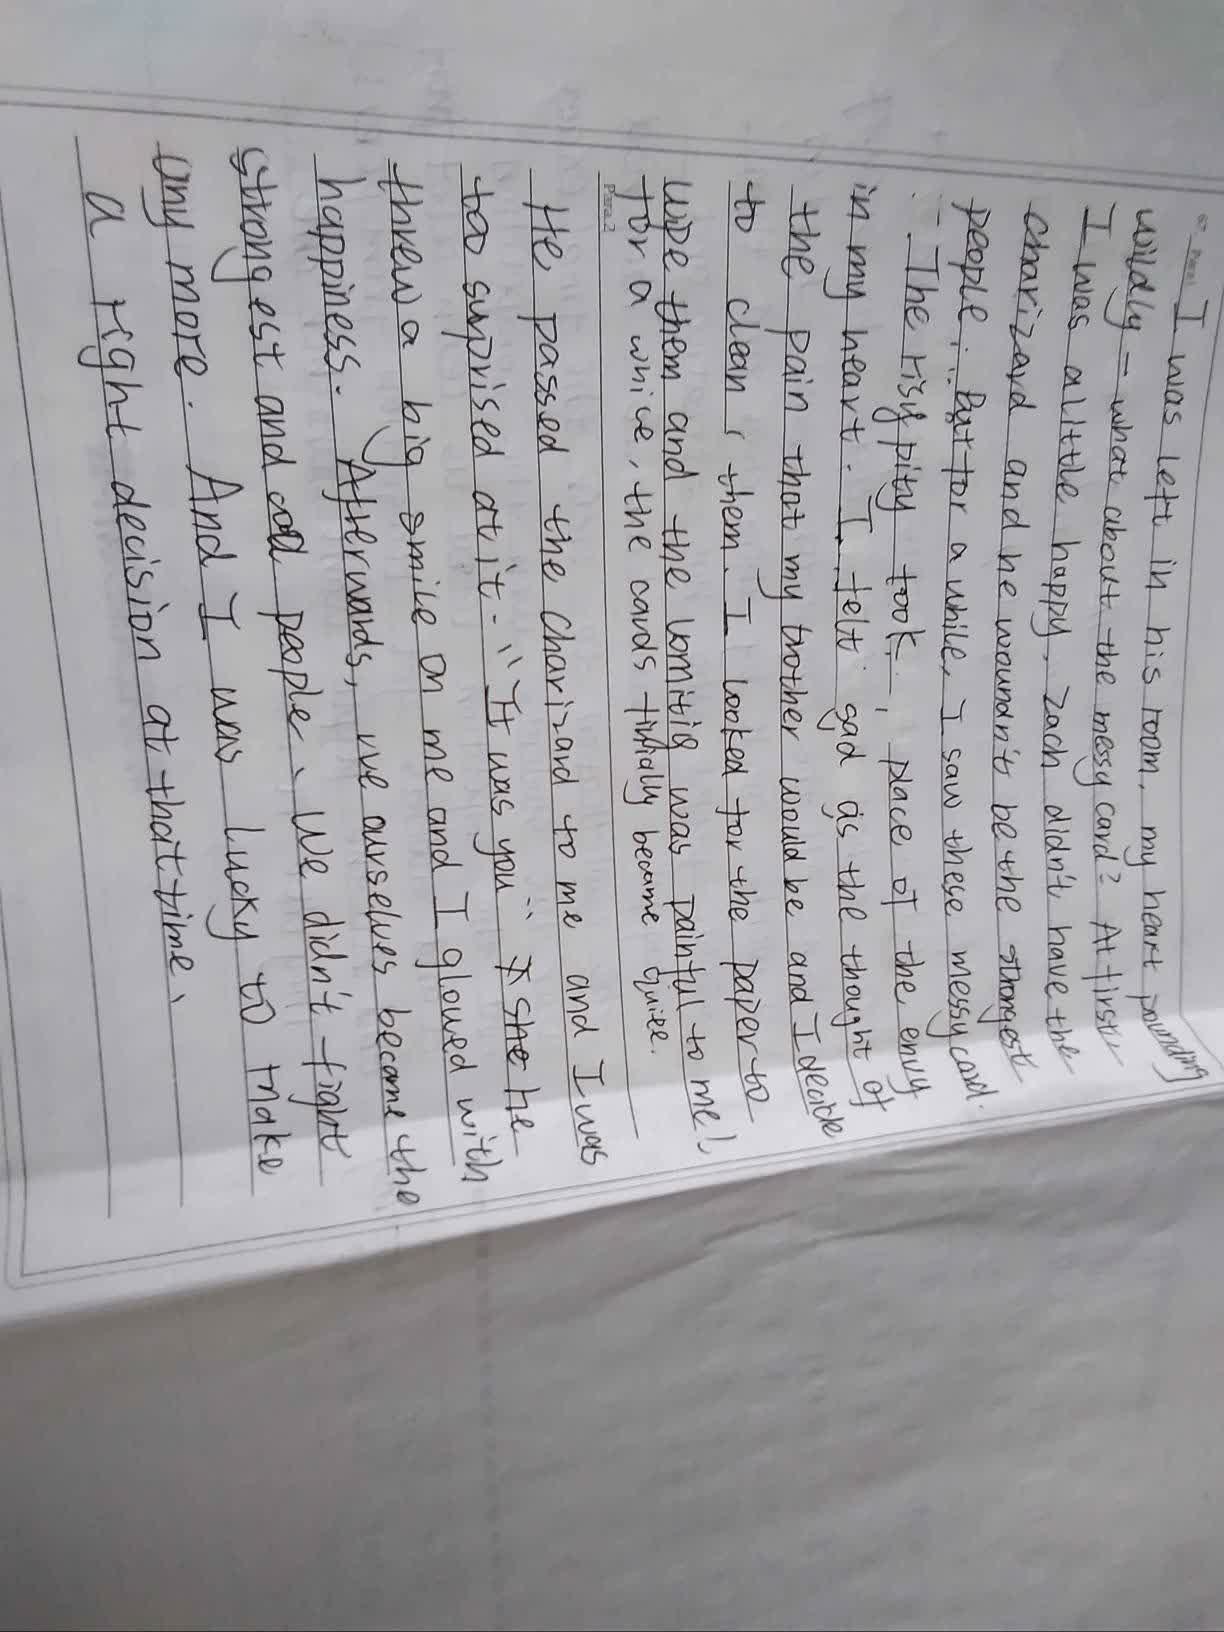 Para1 I was left in his room, my heart pounding
wildly - what about the messy card? At first
I was a little happy, Zach didn't have the
charizard and he woundn't be the strongest
people ... But for a while, I saw these messy card.
The risy pity took, place of the envy
in my heart. I felt sad as the thought of
the pain that my brother would be and I decide
to clean, them. I looked for the paper to
wipe them and the vomitig was painful to me!
for a while, the cards finally became quiee.
Para2
He passed the charizard to me and I was
too surprised at it. "It was you" she he
threw a big smile on me and I glowed with
happiness. Afterwards, we ourselves became the
strongest and people. We didn't fight
any more. And I was lucky to make
a right decision at that time.